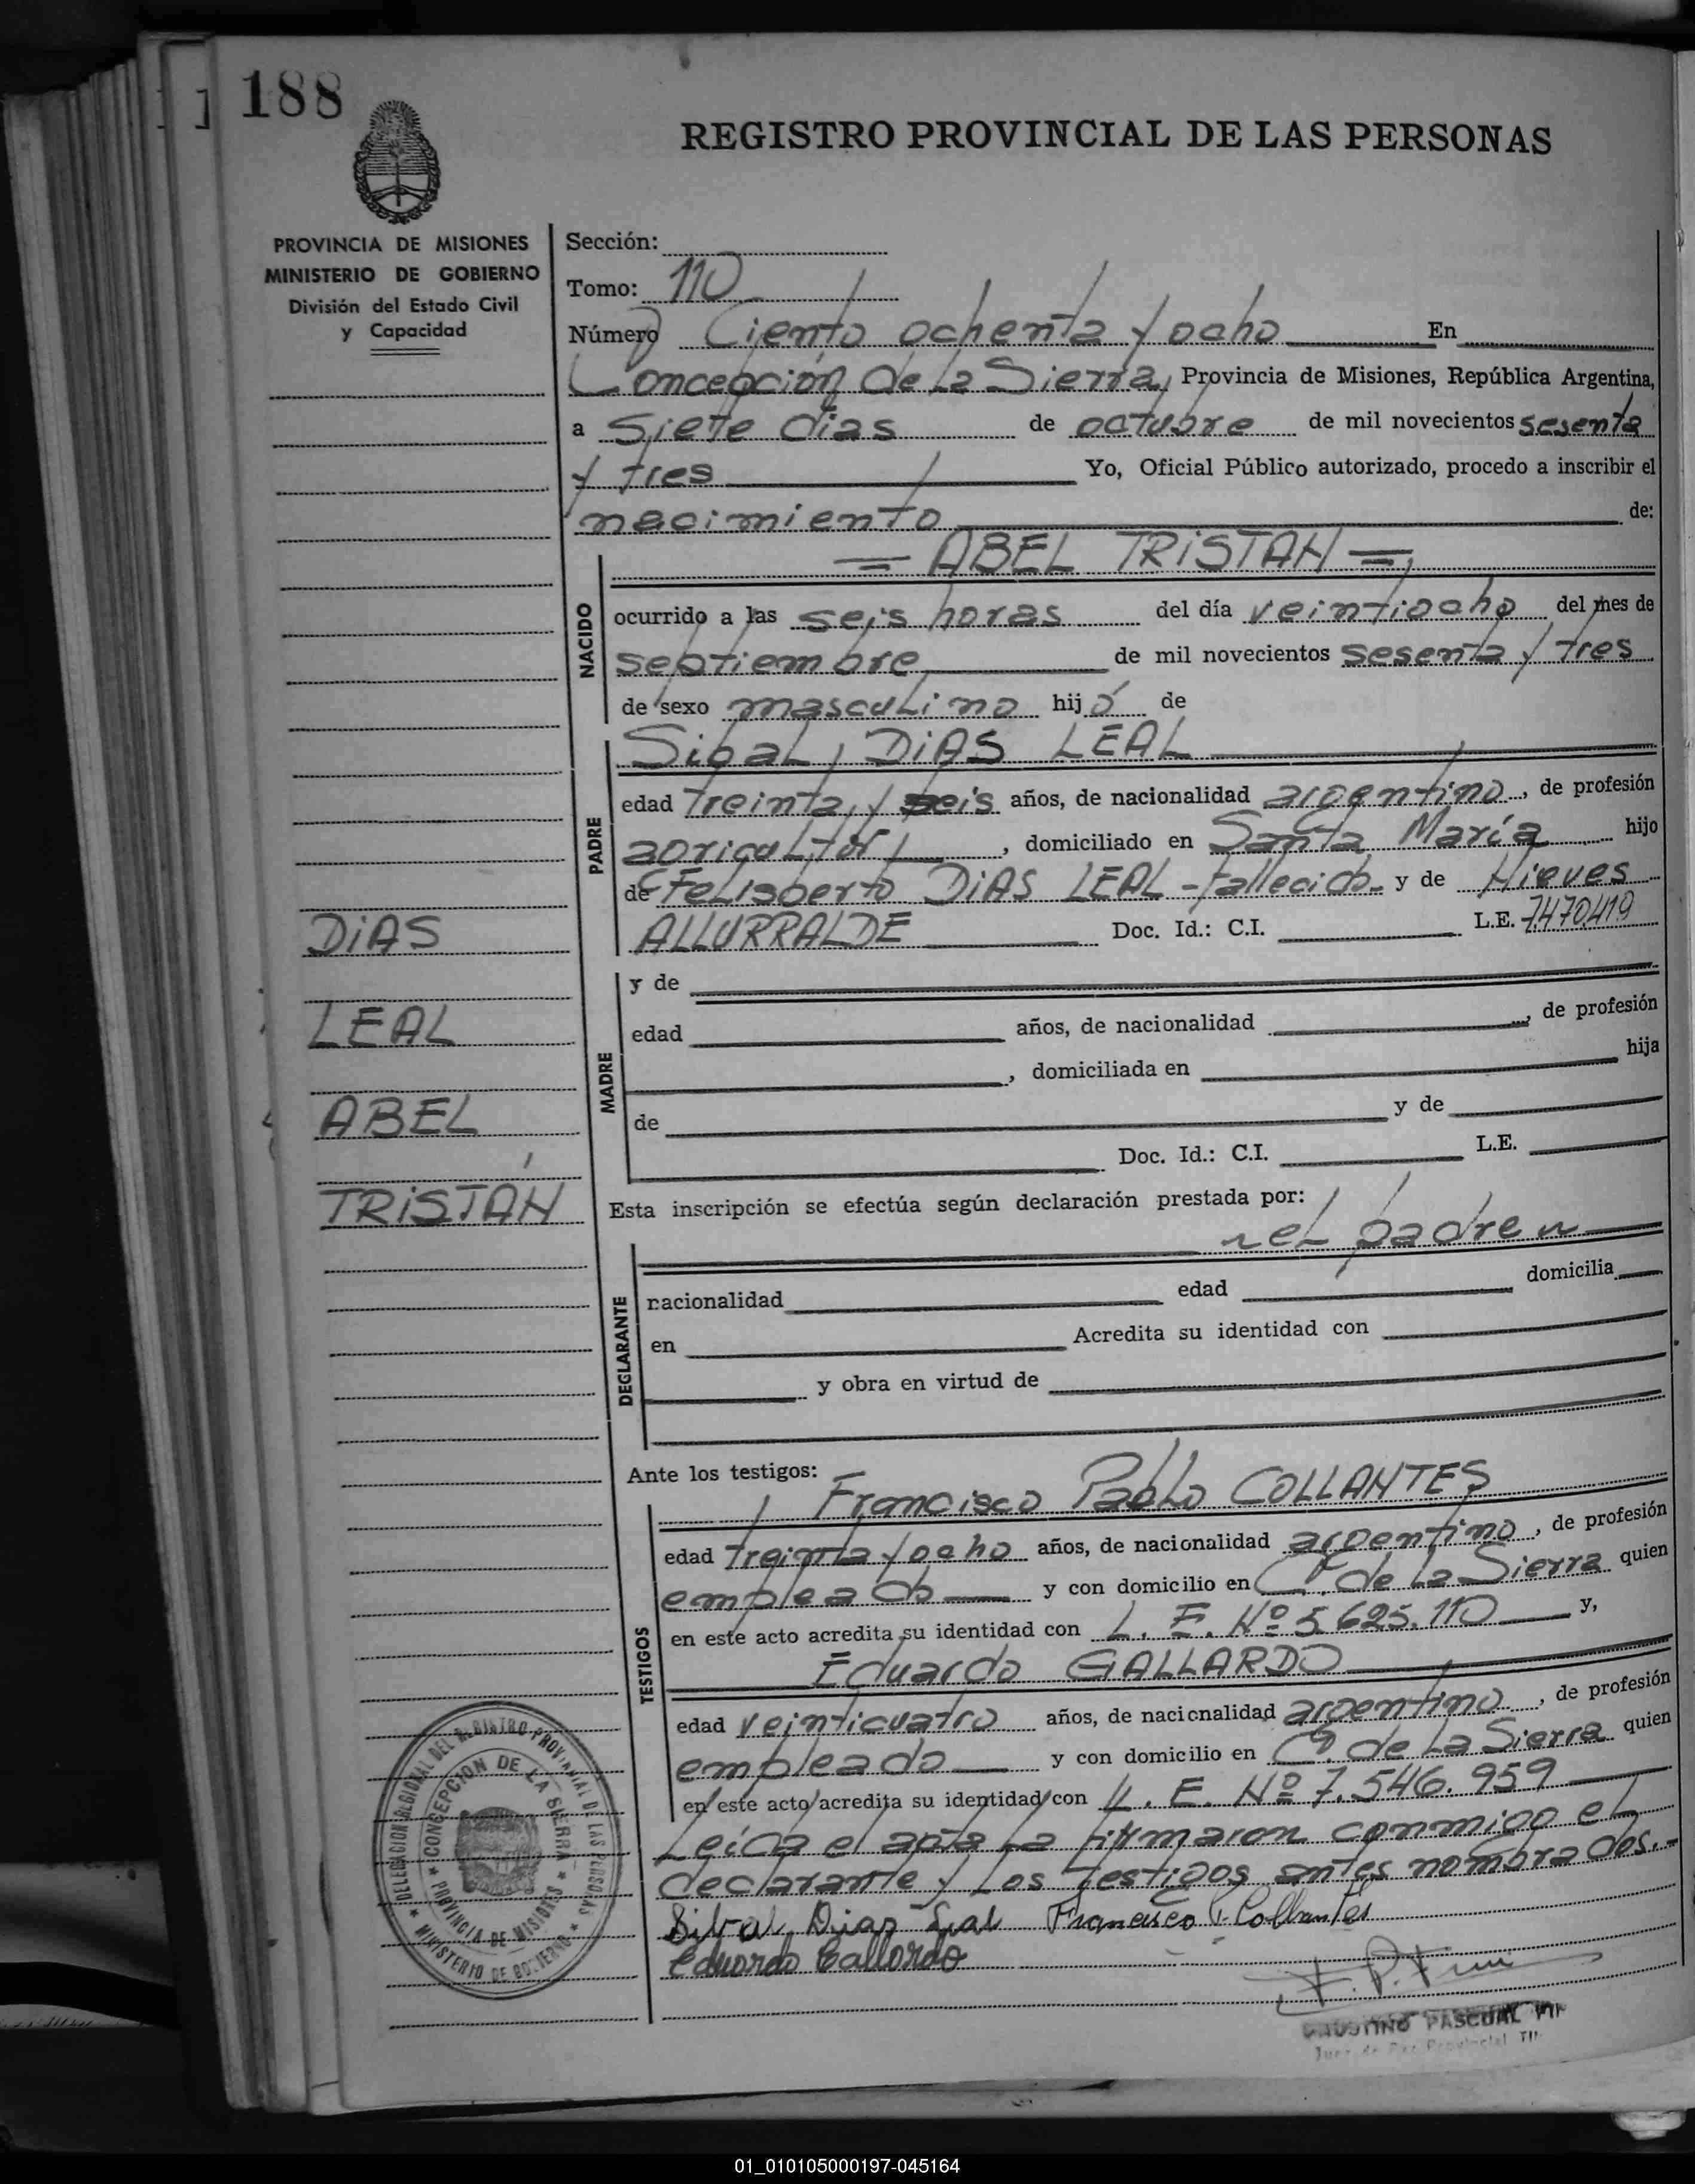 188
REGISTRO PROVINCIAL DE LAS PERSONAS
PROVINCIA DE MISIONES
MINISTERIO DE GOBIERNO
División del Estado Civil
y Capacidad
Sección:
Tomo: 110
Número Ciento ochenta y ocho En
Concepción de la Sierra, Provincia de Misiones, República Argentina,
a Siete días de octubre de mil novecientos sesenta
y tres Yo, Oficial Público autorizado, procedo a inscribir el
nacimiento de:
= ABEL TRISTAN =
NACIDO
ocurrido a las seis horas del día veintiocho del mes de
septiembre de mil novecientos sesenta y tres
de sexo masculino hijo de
PADRE
Sibal DIAS LEAL
edad treinta y seis años, de nacionalidad argentino, de profesión
agricultor, domiciliado en Santa María hijo
de Felisberto DIAS LEAL - fallecido - y de Nieves
ALLURRALDE Doc. Id.: C.I. L.E. 7.470.419
DIAS
LEAL
ABEL
TRISTÁN
MADRE
y de
edad años, de nacionalidad , de profesión
, domiciliada en hija
de y de
Doc. Id.: C.I. L.E.
Esta inscripción se efectúa según declaración prestada por:
el padre
DECLARANTE
nacionalidad edad domicilia
en Acredita su identidad con
y obra en virtud de
Ante los testigos:
Francisco Pablo COLLANTES
TESTIGOS
edad treinta y ocho años, de nacionalidad argentino, de profesión
empleado y con domicilio en C. de la Sierra quien
en este acto acredita su identidad con L. E. Nº 5.625.110 y,
Eduardo GALLARDO
edad veinticuatro años, de nacionalidad argentino, de profesión
empleado y con domicilio en Cº. de la Sierra quien
en este acto acredita su identidad con L. E. Nº 7.546.959
Leída el acta la firmaron conmigo el
declarante y los testigos antes nombrados.-
Sibal Dias Leal Francisco P. Collantes
Eduardo Gallardo
DELEGACION REGIONAL DEL REGISTRO PROVINCIAL D LAS PERSONAS
CONCEPCION DE LA SIERRA
PROVINCIA DE MISIONES
MINISTERIO DE GOBIERNO
FAUSTINO PASCUAL
Juez de Paz Provincial
01_010105000197-045164